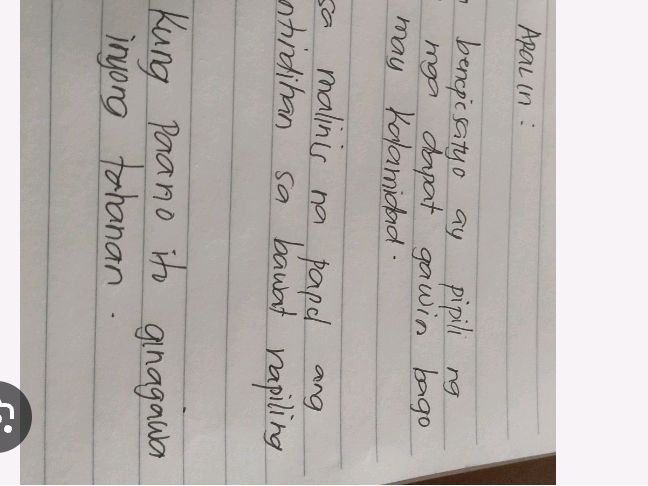 APALIN :
ay pipili ng
mga dapat gawin bago
may kalamidad.
sa malinis na papel ang
ntindihan sa bawat napiling
Kung paano ito ginagawa
inyong tahanan .